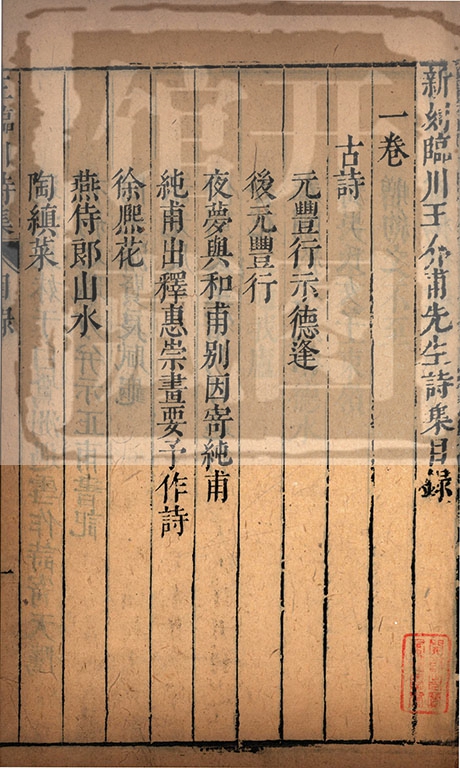 新刻臨川王介甫先生詩集目錄
一卷
古詩
元豐行示德逢
後元豐行
夜夢與和甫别因寄純甫
純甫出釋惠崇畫要予作詩
徐熈花
燕侍郎山水
陶縝菜
王臨川詩集
目錄
一